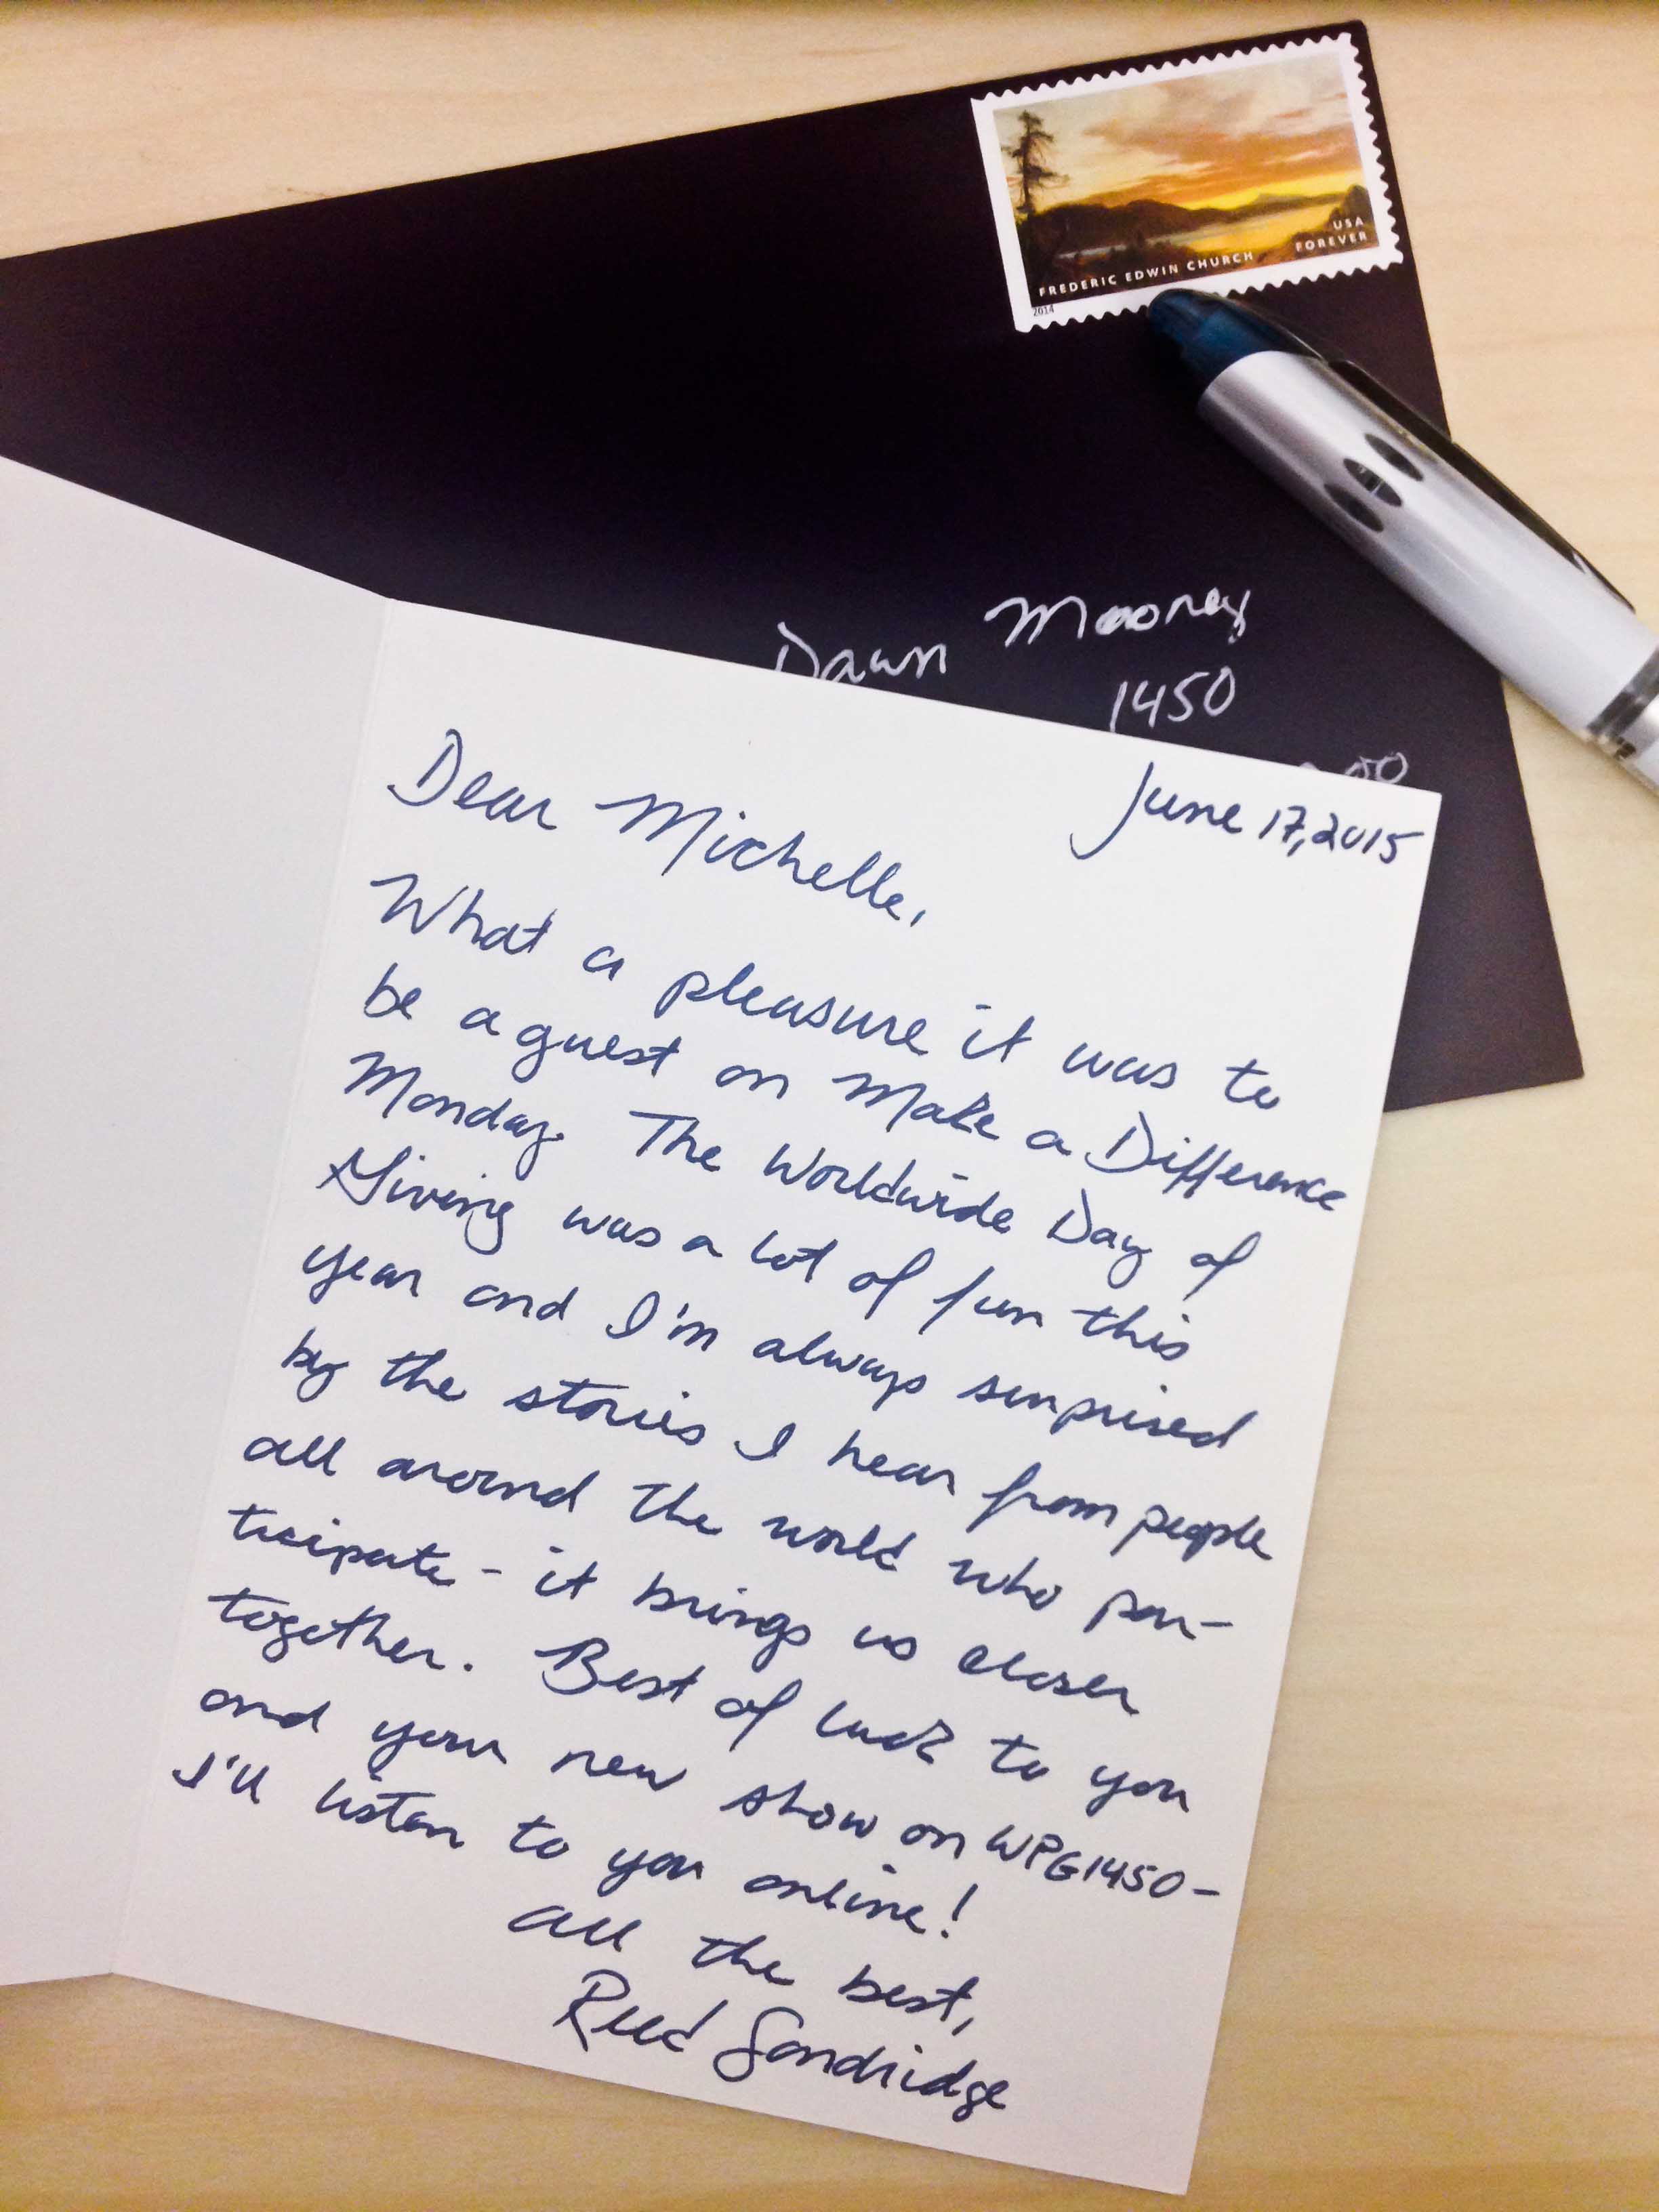 USA
FOREVER
FREDERIC EDWIN CHURCH
2014
Dawn Mooney
1450
June 17, 2015
Dear Michelle,
What a pleasure it was to
be a guest on Make a Difference
Monday. The Worldwide Day of
Giving was a lot of fun this
year and I'm always surprised
by the stories I hear from people
all around the world who par-
ticipate - it brings us closer
together. Best of luck to you
and your new show on WPG1450-
I'll listen to you online!
All the best,
Reed Sandridge